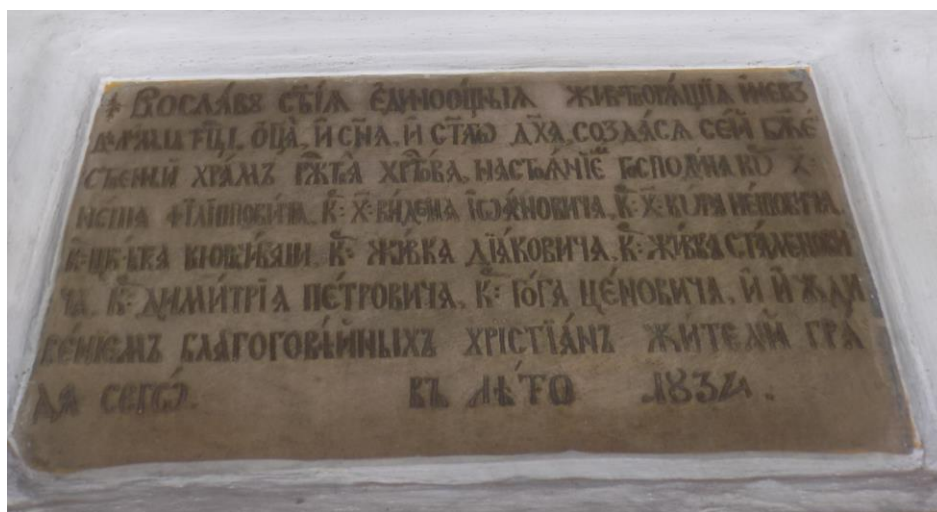 + Вославꙋ ст҃ы́ѧ є҆диноѻщныѧ живⷮворѧщїѧ и҆нераз
дѣлимы трⷪ҇цы, ѻ҆ц҃а̀, и҆ сн҃а, и҆ ст҃аѡ дх҃а, создасѧ се́й бж҃е
ственый хра́мъ ржⷭ҇тва̀ хрⷭ҇то́ва, настоѧ́нїе господи́на кѷ х:
фїлі́пповича, к: х: видена і҆ѡа́новича, к: х:
к: жи́вка дїа́ковича, к: жи́вка стаменови
ча, к: дими́трїа пе́тровича, к: го́га це́новича, и҆ и҆жди
ве́нїемъ благоговѣ́йныхъ хрїстїа́нъ жи́телѥй гра
да сегѡ̀. въ лѣ́то 1834.